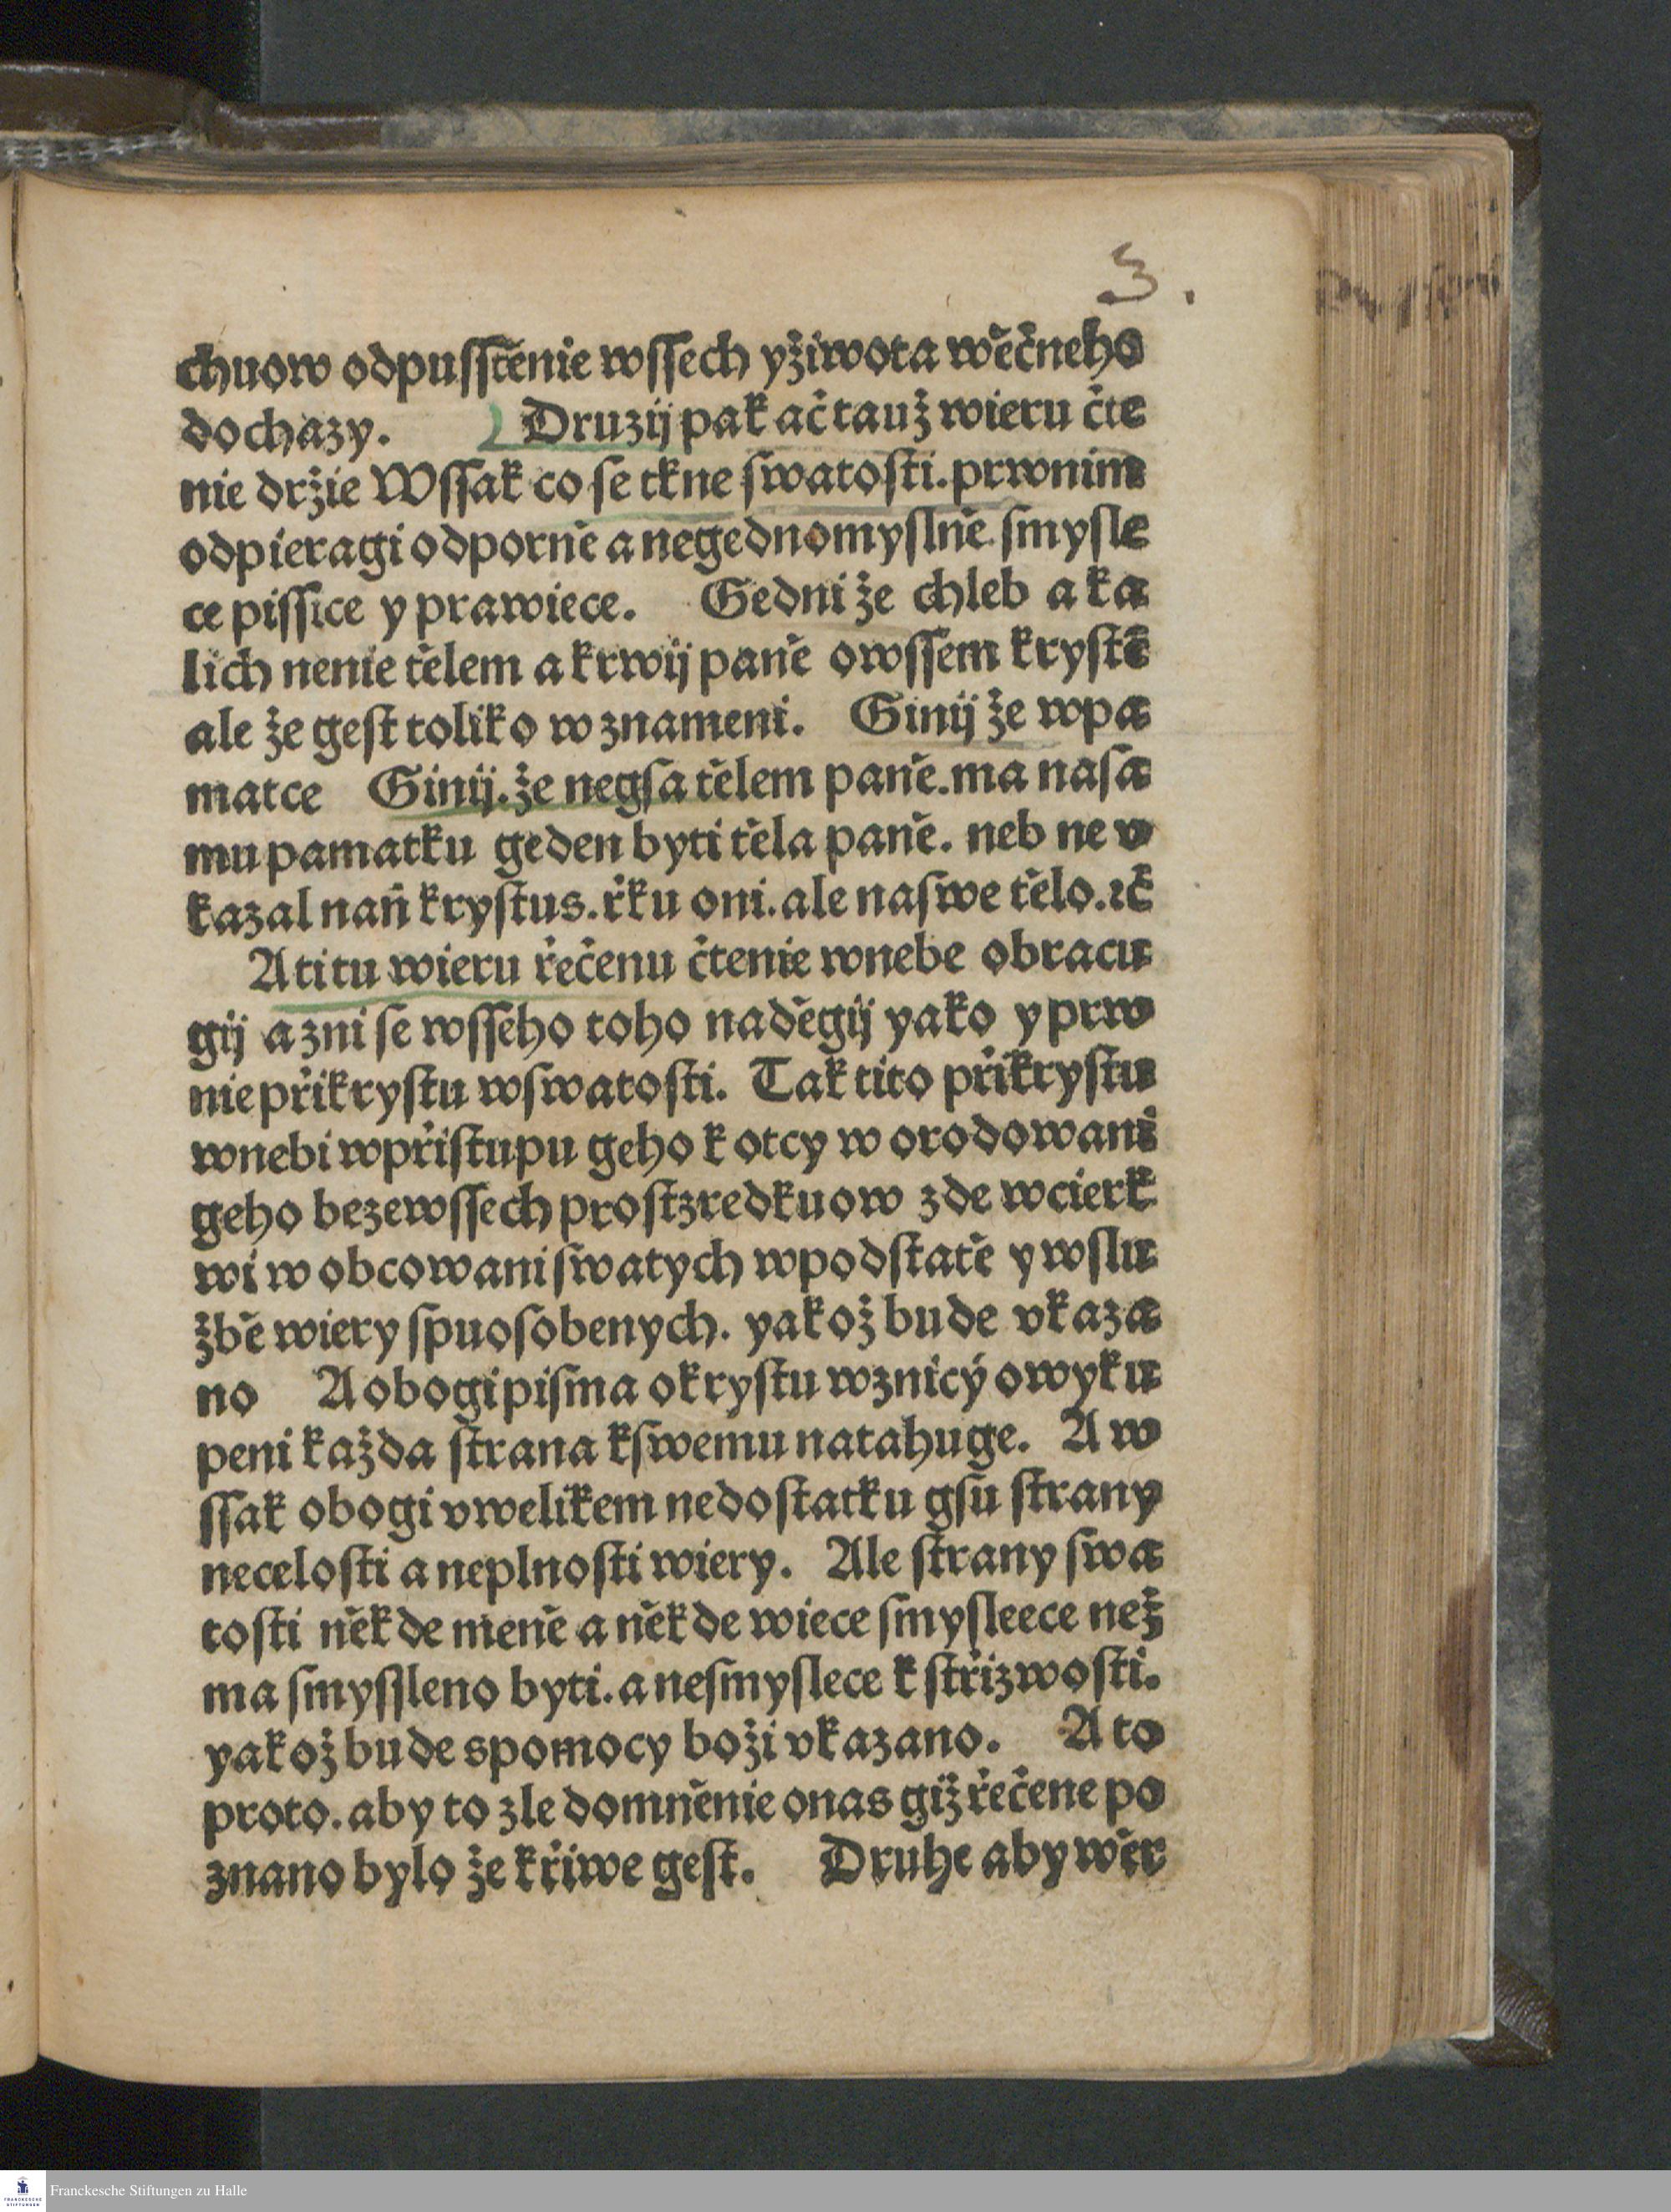 3.
chuow odpusſtěnie wſſech yžiwota wěčneho
dochazy. Druzij pak ač tauž wieru čte
nie držie Wſſak co ſe tkne ſwatoſti. prwnim
odpieragi odporně a negednomyſlně ſmyſle
ce piſſice y prawiece. Gedni že chleb a ka
lich nenie tělem a krwij paně owſſem kryſtě
ale že geſt toliko w znameni. Ginij že wpa
matce Ginij. že negſa tělem paně. ma naſa
mu pamatku geden byti těla paně. neb ne v
kazal naň kryſtus. řku oni. ale naſwe tělo. ⁊č
A titu wieru řečenu čtenie wnebe obracu
gij a zni ſe wſſeho toho naděgij yako y prw
nie přikryſtu wſwatoſti. Tak tito přikryſtu
wnebi wpřiſtupu geho k otcy w orodowani
geho bezewſſech proſtzredkuow zde wcierk
wi w obcowani ſwatych wpodſtatě y wſlu
žbě wiery ſpuoſobenych. yakož bude vkaza
no A obogi piſma okryſtu wznicý owyku
peni každa ſtrana kſwemu natahuge. A w
ſſak obogi vwelikem nedoſtatku gſu ſtrany
neceloſti a neplnoſti wiery. Ale ſtrany ſwa
toſti někde meně a někde wiece ſmyſleece než
ma ſmyſſleno byti. a neſmyſlece k ſtřizwoſti.
yakož bude spomocy boži vkazano. A to
proto. aby to zle domněnie onas giž řečene po
znano bylo že křiwe geſt. Druhe aby wěr
Franckesche Stiftungen zu Halle